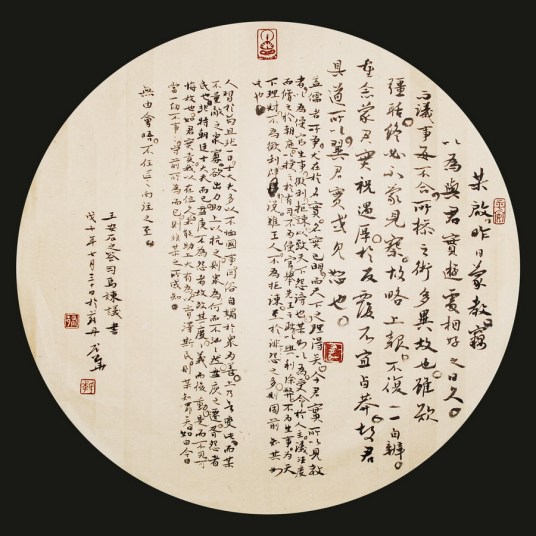 某啟昨日蒙教竊
以為與君實遊處相好之日久。
而議事每不合所操之術多異故也。雖欲
彊聒終必不蒙見察。故略上報不復一一自辨。
重念蒙君實視遇厚。於反覆不宜鹵莽。故君
具道所以冀君實或見恕也。
蓋儒者所爭尤在於名實。名實已明而天下之理得矣。今君實所以見教
者為侵官生事徵利拒諫以致天下怨謗也某則以為受命於人主議法度
而脩之於朝庭授之於有司不為侵官舉先王之政以興利除弊不為生事為天
下理財不為徵利闢邪說難壬人不為拒諫。至於怨之多則固前知其如
此也。
人習於苟且非一日士大夫多以不恤國事同俗自媚於眾為善。上乃欲變此而某
不量敵之眾寡欲出力助上以抗之則眾何為而不洶洶然盤庚之遷胥怨者
民也非特朝廷士大夫而已盤庚不為怨者故改其度度義而後動是而不見可
悔故也如君實責我以在位久未能助上大有為膏澤斯民則某知罪矣如曰今日
當一切不事事守前所為而已則非某之所敢知。
無由會晤。不任區區向往之至。
王安石之答司馬諫議書
年七月三十日於